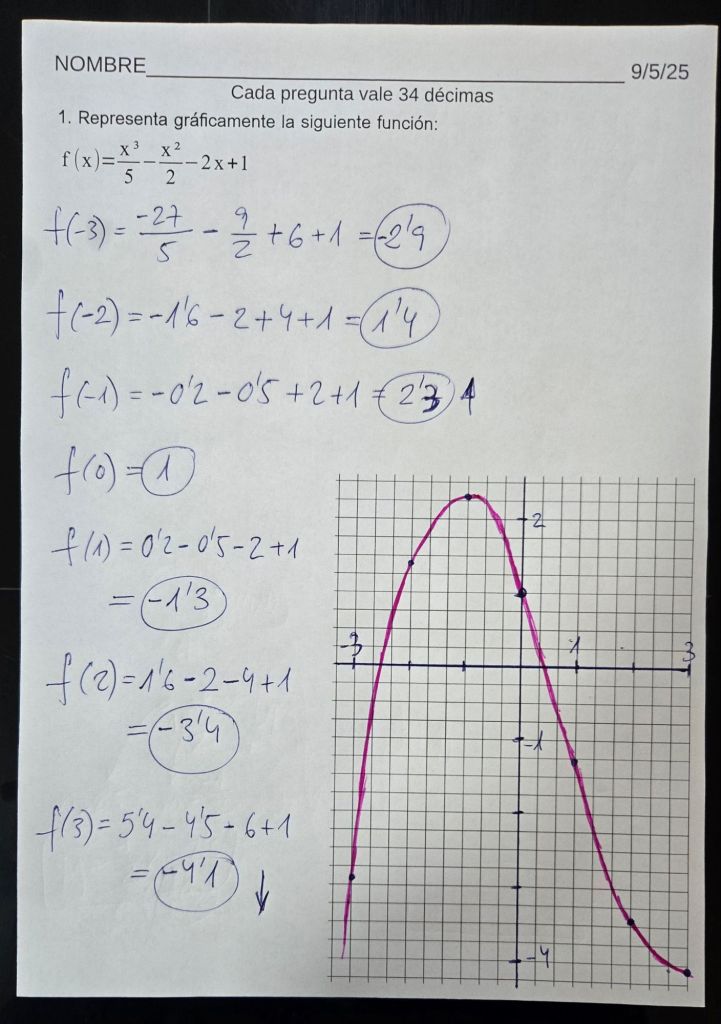 NOMBRE 9/5/25
Cada pregunta vale 34 décimas
1. Representa gráficamente la siguiente función:
f(x)=x³/5−x²/2−2x+1
f(-3) = -27/5 - 9/2 + 6 + 1 = -2'9
f(-2) = -1'6 - 2 + 4 + 1 = 1'4
f(-1) = -0'2 - 0'5 + 2 + 1 = 2'3
f(0) = 1
f(1) = 0'2 - 0'5 - 2 + 1
= -1'3
f(2) = 1'6 - 2 - 4 + 1
= -3'4
f(3) = 5'4 - 4'5 - 6 + 1
= -4'1 ↓
2
-3 1 3
-1
-4